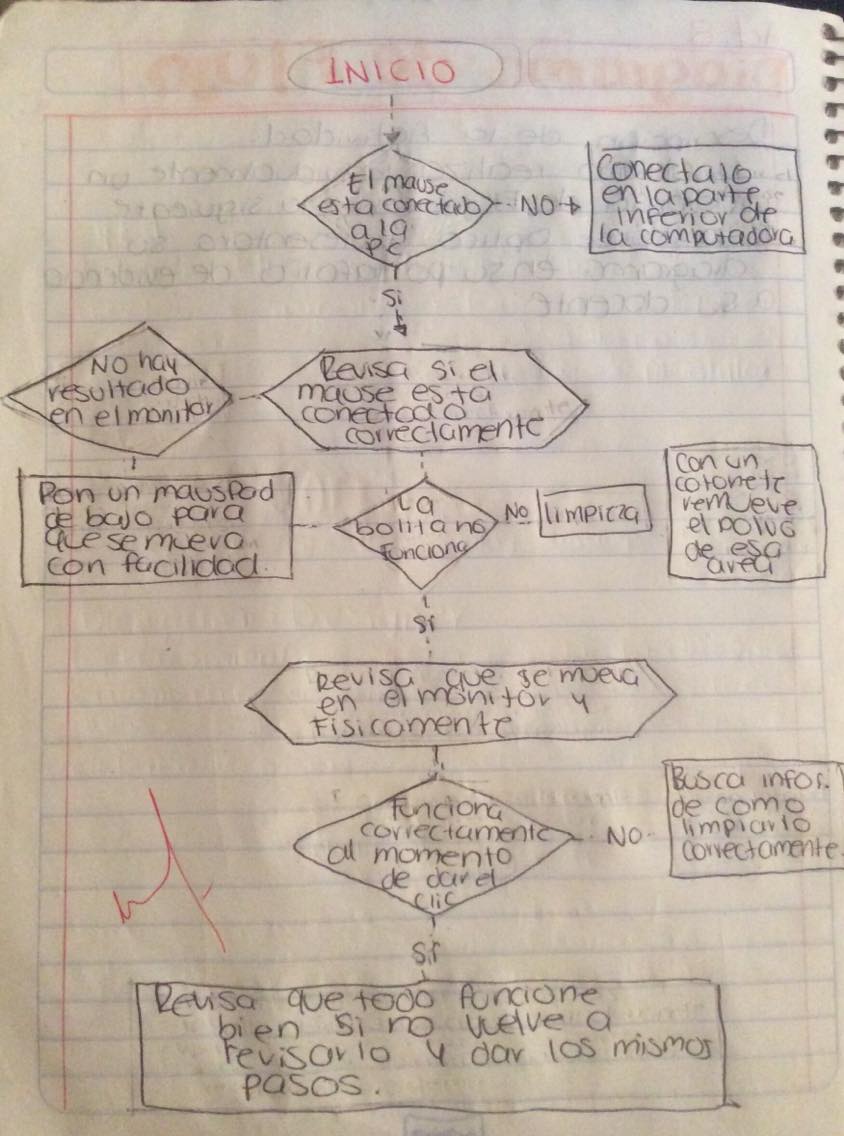 INICIO
El mause
esta conectado
a la
PC
NO
Conectalo
en la parte
inferior de
la computadora
Si
NO hay
resultado
en el monitor
Revisa si el
mause esta
conectado
correctamente
Pon un mausPad
de bajo para
que se mueva
con facilidad.
La
bolita no
funciona
No
limpieza
con un
cotonete
remueve
el polvo
de esa
area
Si
Revisa que se mueva
en el monitor y
Fisicamente
Funciona
correctamente
al momento
de dar el
clic
NO
Busca infor.
de como
limpiarlo
correctamente.
Si
Revisa que todo funcione
bien si no vuelve a
revisarlo y dar los mismos
pasos.